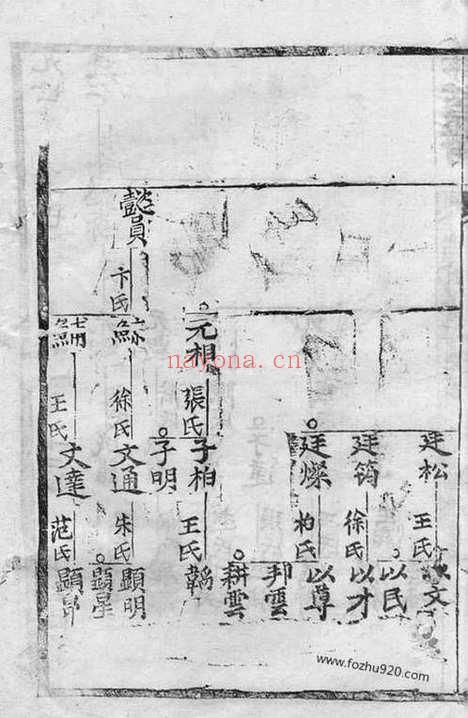 廷松
王氏
以文
以民
廷筠
徐氏
以才
廷燦
柏氏
以尊
邦雲
耕雲
元相
張氏
子柏
王氏
子明
卞氏
徐氏
文通
朱氏
顯明
顯星
王氏
文達
范氏
nayona.cn
www.fozhu920.com